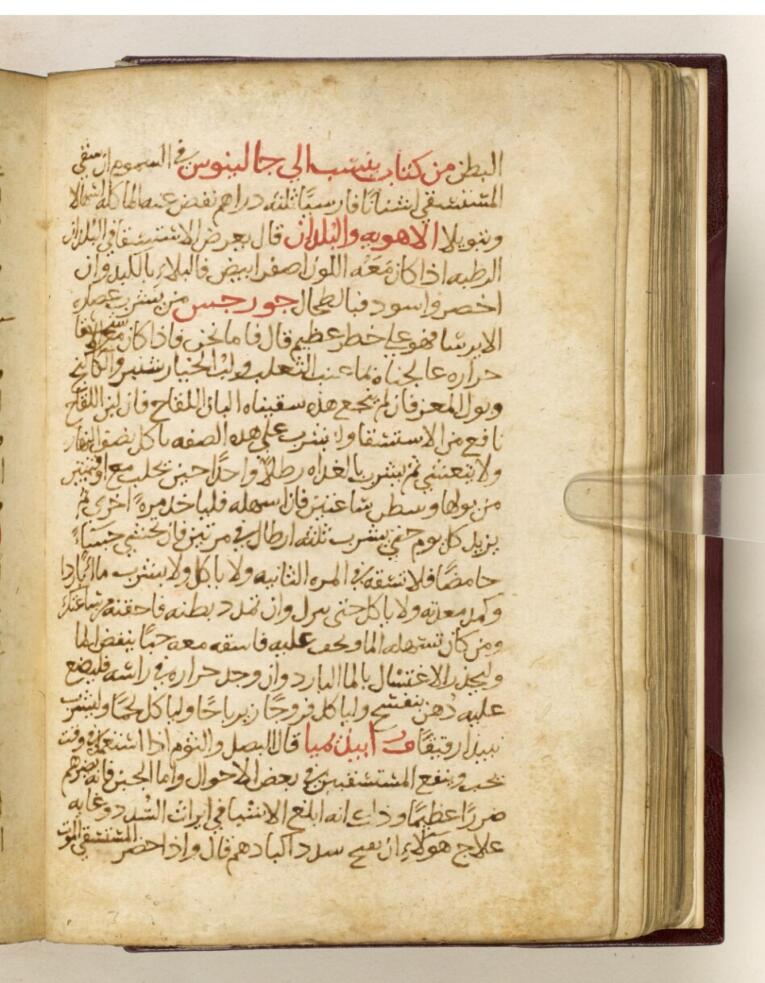 البطن من كتاب ينسب الى جالينوس في السموم ان سقي
المستسقي اشنانا فارسيا ثلثه دراهم نفض عنه الما كله اسهالا
وتبويلا الاهويه والبلدان قال يعرض الاستسقا في البلدان
الرطبه اذا كان معه اللون اصفر ابيض فالبلاء بالكبد وان
اخضر واسود فبالطحال جورجس من يشرب عصاره
الايرسا فهو على خطر عظيم قال فاما نحن فاذا كان مع
حراره عالجناه بما عنب الثعلب ولب الخيار شنبر والكاكنج
وبول المعز فان لم ينجع هذه سقيناه البان اللقاح فان لبن اللقاح
نافع من الاستسقا ولا يشرب على هذه الصفه ياكل نصف النهار
ولا يتعشى ثم يشرب بالغداه رطلا واحدا حين يحلب مع اوقيتين
من بولها وسطر ساعتين فان اسهله فلياخذ مره اخرى ثم
يزيد كل يوم حتى يشرب ثلثه ارطال في مرتين فان تجشى جشاء
حامضا فلا تسقه في المره الثانيه ولا ياكل ولا يشرب ما باردا
وكمد معدته ولا ياكل حتى ينزل وان تمدد بطنه فاحقنه من ساعتك
ومن كان تسهله الما ويخف عليه فاسقه معه حبا ينفض الما
وليحذر الاغتسال بالما البارد وان وجد حراره في راسه فليضع
عليه دهن بنفسج ولياكل فروجا زيرباجا ولياكل لحما وليشرب
نبيذا رقيقا من ابيذيميا قال البصل والثوم اذا استعمل في وقت
يجب وينفع المستسقيين في بعض الاحوال واما الجبن فانه يضرهم
ضررا عظيما وذاك انه ابلغ الاشيا في ايراث السدد وغايه
علاج هولاء ان يفتح سدد اكبادهم قال واذا احضر المستسقي الموت